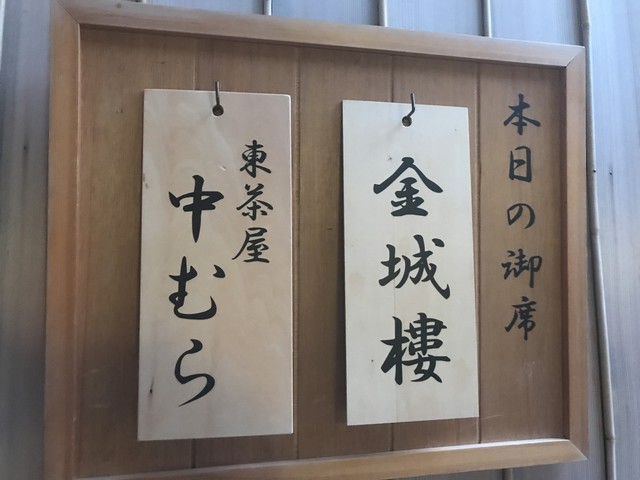 本日の御席
金城樓
東茶屋
中むら